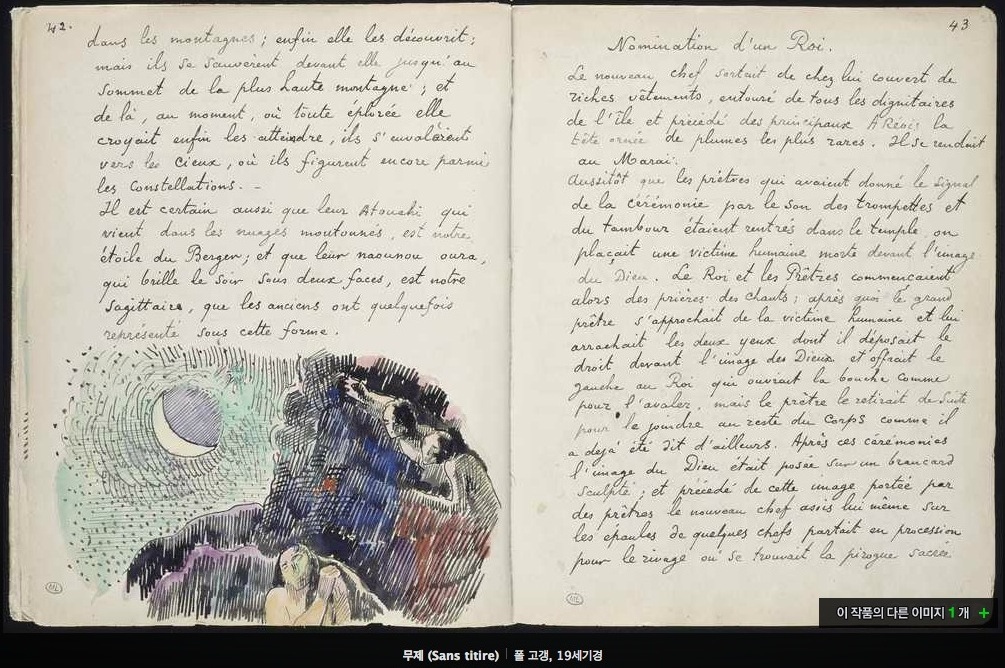 42.
dans les montagnes ; enfin elle les découvrit ;
mais ils se sauvèrent devant elle jusqu'au
sommet de la plus haute montagne ; et
de là, au moment, où toute éplorée elle
croyait enfin les atteindre, ils s'envolèrent
vers les cieux, où ils figurent encore parmi
les Constellations. -
Il est certain aussi que leur Atouahi qui
vient dans les nuages moutonnés, est notre
étoile du Berger; et que leur naounou oura,
qui brille le soir sous deux faces, est notre
Sagittaire, que les anciens ont quelquefois
représenté sous cette forme.
ML
43
Nomination d'un Roi.
Le nouveau chef sortait de chez lui couvert de
riches vêtements, entouré de tous les dignitaires
de l'île et précédé des principaux Aréois la
tête ornée de plumes les plus rares. Il se rendait
au Marai.
Aussitôt que les prêtres qui avaient donné le signal
de la cérémonie par le son des trompettes et
du tambour étaient rentrés dans le temple, on
plaçait une victime humaine morte devant l'image
du Dieu. Le Roi et les Prêtres commencaient
alors des prières des chants ; après quoi le grand
prêtre s'approchait de la victime humaine et lui
arrachait les deux yeux dont il déposait le
droit devant l'image des Dieux et offrait le
gauche au Roi qui ouvrait la bouche comme
pour l'avaler, mais le prêtre le retirait de suite
pour le joindre au reste du corps comme il
a déjà été dit d'ailleurs. Après ces cérémonies
l'image du Dieu était posée sur un brancard
sculpté ; et précédé de cette image portée par
des prêtres le nouveau chef assis lui même sur
les épaules de quelques chefs partait en procession
pour le rivage où se trouvait la pirogue sacrée
ML
이 작품의 다른 이미지 1개 +
무제 (Sans titire) | 폴 고갱, 19세기경